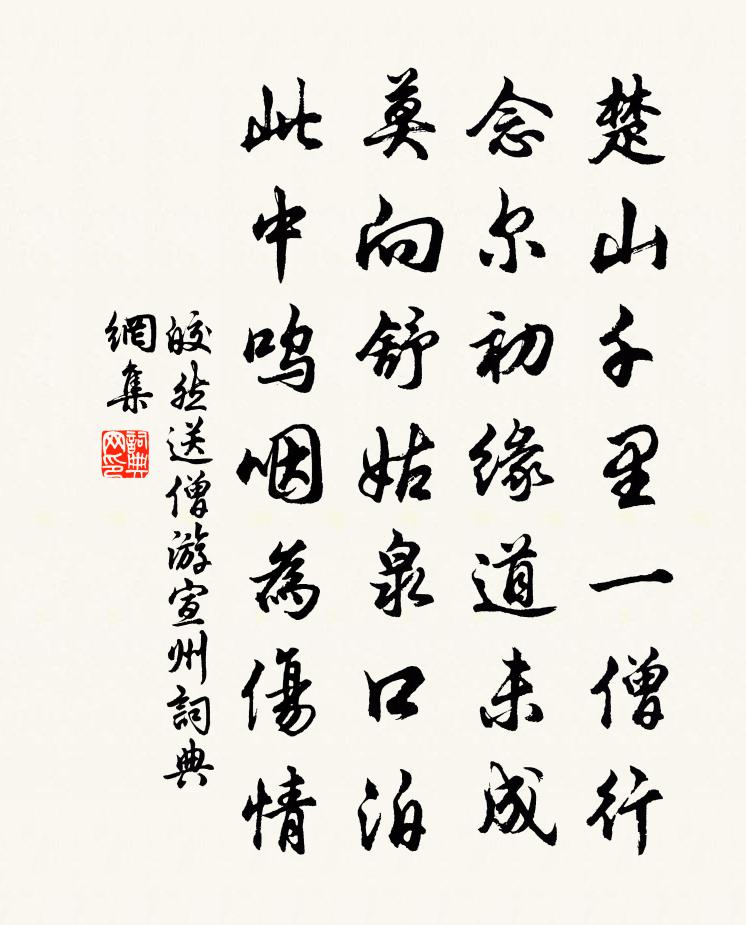 楚山千里一僧行
念尔初緣道未成
莫向舒姑泉口泊
此中鸣咽為傷情
皎然送僧游宣州詞典
網集
詞典
网印